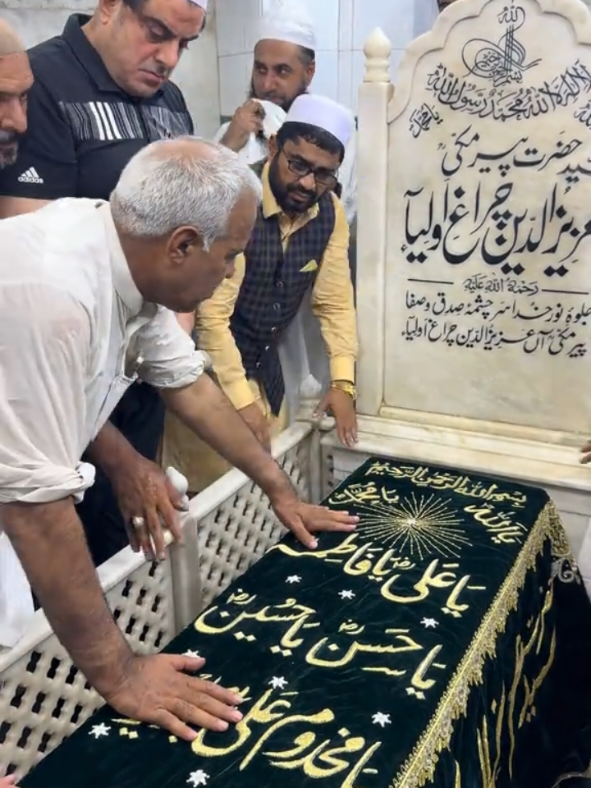 الله
لا اله الا الله محمد رسول الله
حضرت پیر مکی
عزیزالدین چراغ اولیآ
رحمۃ اللہ علیہ
جلوہ نور خدا سر چشمۂ صدق و صفا
پیر مکیؒ آں عزیز الدین چراغ اولیاء
adidas
بسم الله الرحمن الرحيم
یا اللہ یا محمد
یا علی یا فاطمہ
یا حسن یا حسین
یا مخدوم علی